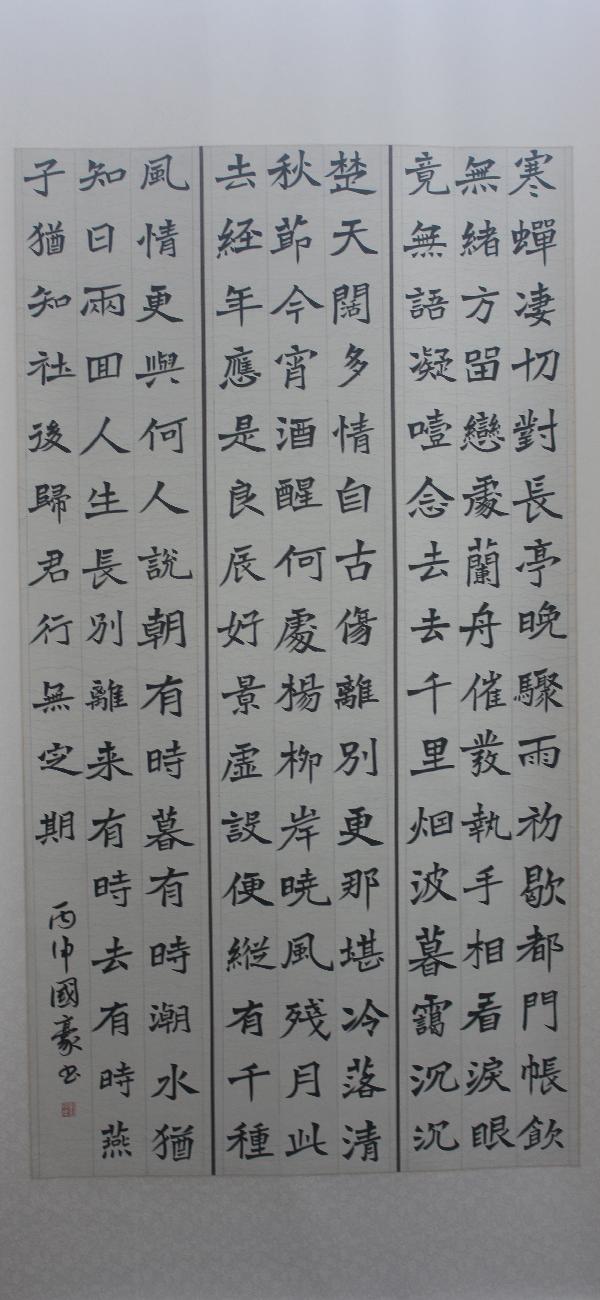 寒蟬凄切對長亭晚驟雨初歇都門帳飲
無緒方畱戀處蘭舟催發執手相看淚眼
竟無語凝噎念去去千里烟波暮靄沉沉
楚天闊多情自古傷離別更那堪冷落清
秋節今宵酒醒何處楊柳岸曉風殘月此
去經年應是良辰好景虛設便縱有千種
風情更與何人說朝有時暮有時潮水猶
知日兩回人生長別離来有時去有時燕
子猶知社後歸君行無定期
丙申國豪书